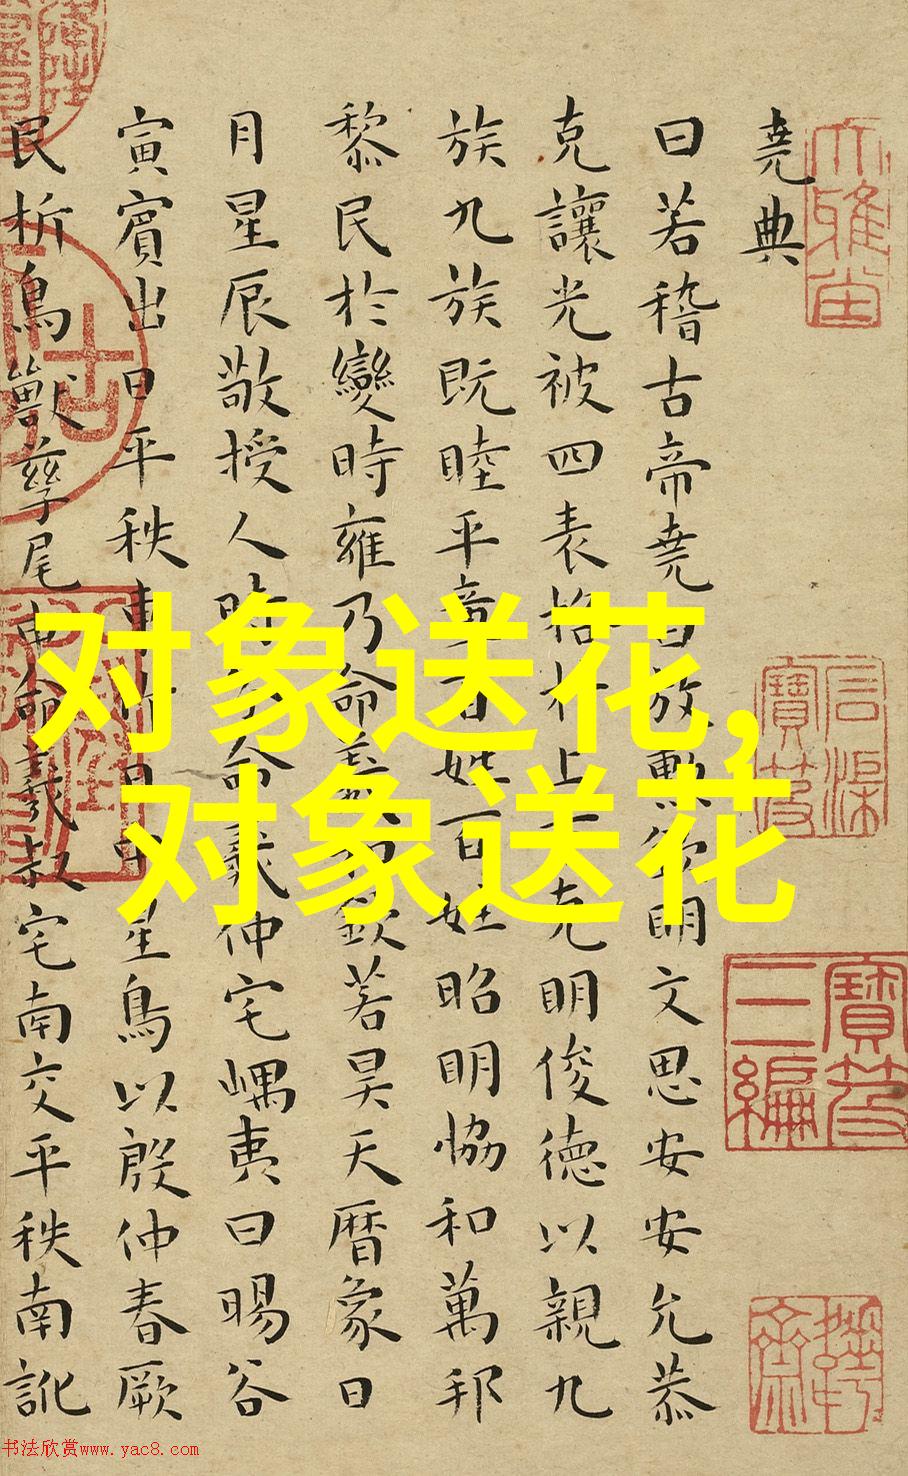 堯典
曰若稽古帝堯曰放勲欽明文思安安允恭
克讓光被四表格於上下克明俊德以親九
族九族既睦平章百姓百姓昭明恊和萬邦
黎民於變時雍乃命羲和欽若昊天曆象日
月星辰敬授人時分命羲仲宅嵎夷曰暘谷
寅賓出日平秩東作日中星鳥以殷仲春厥
民析鳥獸孳尾申命羲叔宅南交平秩南訛
对象送花,
对象送花
石渠
寶笈
寶笈
三編
书法欣赏www.yac8.com